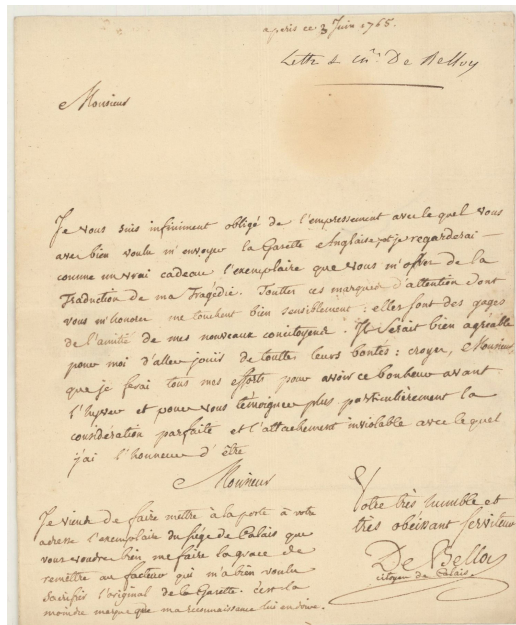 a paris ce 3 Juin 1765.
Lettre de Mr. De Belloy
Monsieur
Je vous suis infiniment obligé de l'empressement avec le quel vous
avez bien voulu m'envoyer la Gazette Anglaise, et je regarderai
comme un vrai cadeau l'exemplaire que vous m'offrez de la
Traduction de ma Tragédie. Touttes ces marques d'attention dont
vous m'honorez me touchent bien sensiblement : elles sont des gages
de l'amitié de mes nouveaux concitoyens. Il serait bien agréable
pour moi d'aller jouir de touttes leurs bontés : croyez, Monsieur,
que je ferai tous mes efforts pour avoir ce bonheur avant
l'hyver et pour vous témoigner plus particulièrement la
considération parfaite et l'attachement inviolable avec le quel
j'ai l'honneur d'être
Monsieur
Votre très humble et
très obéissant serviteur
De Belloy
citoyen de Calais.
Je viens de faire mettre à la poste à votre
adresse l'exemplaire du Siège de Calais que
vous voudrez bien me faire la grace de
remettre au facteur qui m'a bien voulu
sacrifier l'original de la Gazette. c'est la
moindre marque que ma reconnaissance lui en doive.